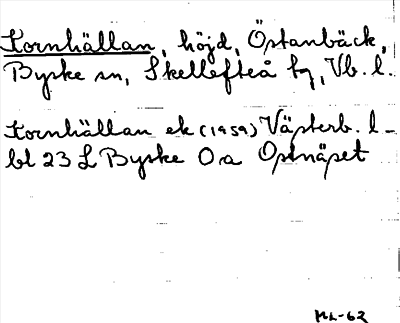 Kornhällan, höjd, Östanbäck,
Byske sn, Skellefteå tg, Vb. l.
Kornhällan ek (1959) Västerb. l -
bl 23 L Byske Oa Ostnäset
ML-62